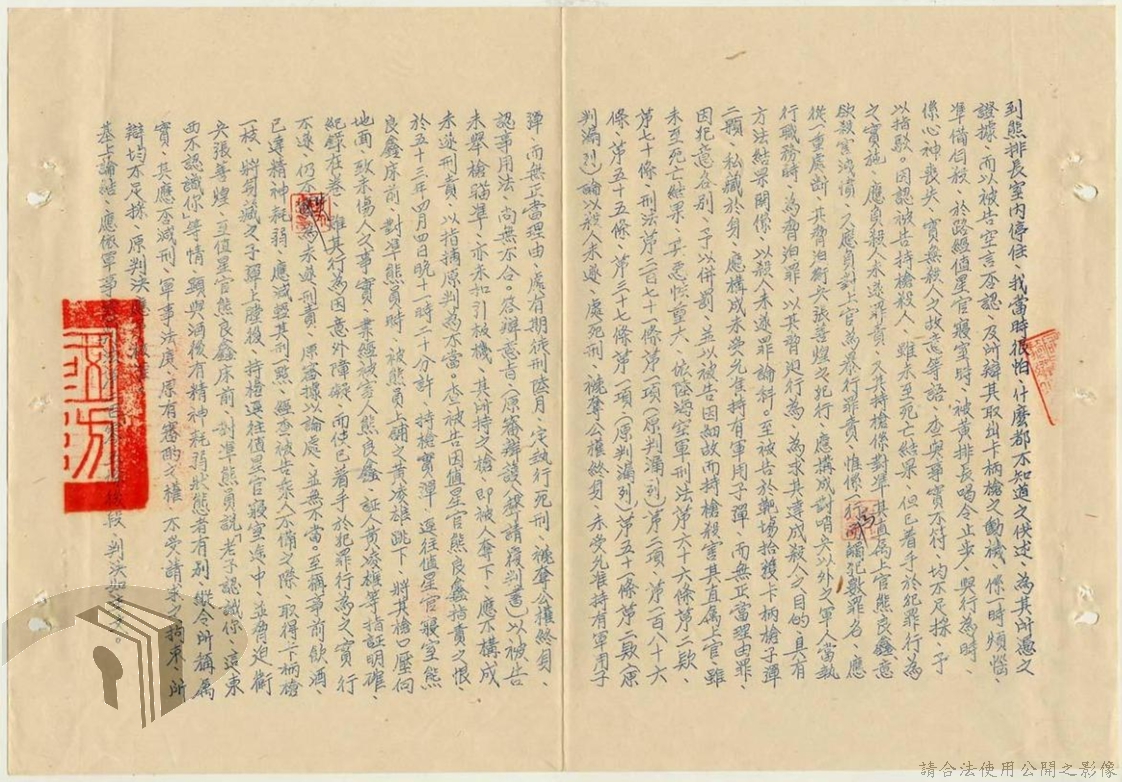 到熊排長室內停住、我當時很怕、什麼都不知道之供述、為其所憑之
證據、而以被告空言否認、及所辯其取卅卡柄槍之動機、係一時煩惱、
準備自殺、於路經值星官寢室時、被黃排長喝令止步、與行為時、
係心神喪失、實無殺人之故意等語、查與事實不符、均不足採、予
以指駁。因認被告持槍殺人、雖未至死亡結果、但已着手於犯罪行為
之實施、應負殺人未遂罪責、又其持槍係對準其直屬上官熊良鑫意
欲殺害洩憤、又應負對上官為暴行罪責、惟係一行為觸犯數罪名、應
從一重處斷、其脅迫衛兵張善煌之犯行、應構成對哨兵以外之軍人當執
行職務時、為脅迫罪、以其脅迫行為、為求其達成殺人之目的、具有
方法結果關係、以殺人未遂罪論科。至被告於靶場拾獲卡柄槍子彈
二顆、私藏於身、應構成未受允准持有軍用子彈、而無正當理由罪、
因犯意各別、予以併罰、並以被告因細故而持槍殺害其直屬上官、雖
未至死亡結果、其惡性重大、依陸海空軍刑法第六十六條第二款、
第七十條、刑法第二百七十一條第一項(原判漏列)第二項、第一百八十六
條、第五十五條、第三十七條第一項(原判漏列)第五十一條第二款(原
判漏列)論以殺人未遂、處死刑、褫奪公權終身、未受允准持有軍用子
彈、而無正當理由、處有期徒刑陸月、定執行死刑、褫奪公權終身、
認事用法、尚無不合。答辯意旨(原審辯護人聲請復判書)以被告
未舉槍瞄準、亦未扣引板機、其所持之槍、即被人奪下、應不構成
未遂刑責、以指摘原判為不當、查被告因值星官熊良鑫指責之恨、
於五十三年四月四日晚十一時二十分許、持槍實彈、逕往值星官寢室熊
良鑫床前、對準熊員時、被熊員上鋪之黃凌雄跳下、將其槍口壓向
地面、致未傷人之事實、業經被害人熊良鑫、証人黃凌雄等指証明確、
紀錄在卷、雖其行為因意外障礙、而使已着手於犯罪行為之實行
不遂、仍為未遂刑責、原審據以論處、並無不當。至稱事前飲酒、
已達精神耗弱、應減輕其刑一點、經查被告乘人不備之際、取得卡柄槍
一枝、將苟藏之子彈上膛後、持槍逕往值星官寢室途中、並脅迫衛
兵張善煌、至值星官熊良鑫床前、對準熊員說「老子認識你、這東
西不認識你」等情、顯與酒後有精神耗弱狀態者有別、縱令所稱屬
實、其應否減刑、軍事法庭、原有審酌之權、不受請求之拘束、所
辯均不足採、原判決應
基上論結、應依軍事審判法第 條 段、判決如主文。
請合法使用公開之影像